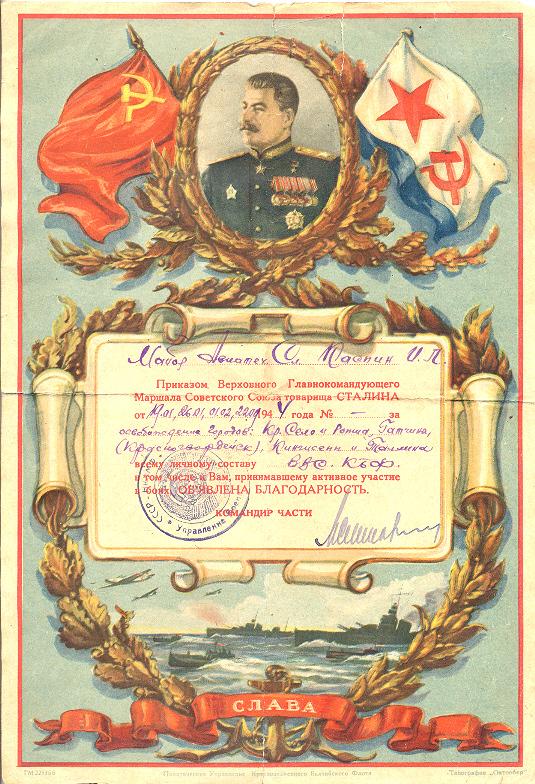 Майор Авиатех. Сл. Паепин И.П.
Приказом Верховного Главнокомандующего
Маршала Советского Союза товарища СТАЛИНА
от 19.01, 26.01, 01.02, 22.09 1944 года № — за
освобождение городов: Кр. Село и Ропша, Гатчина,
(Красногвардейск), Кингисепп и Таллина
всему личному составу ВВС. КБФ.
в том числе и Вам, принимавшему активное участие
в боях, ОБ'ЯВЛЕНА БЛАГОДАРНОСТЬ.
КОМАНДИР ЧАСТИ
СССР Управление
СЛАВА
Политическое Управление Краснознаменного Балтийского Флота
Типография „Октобер"